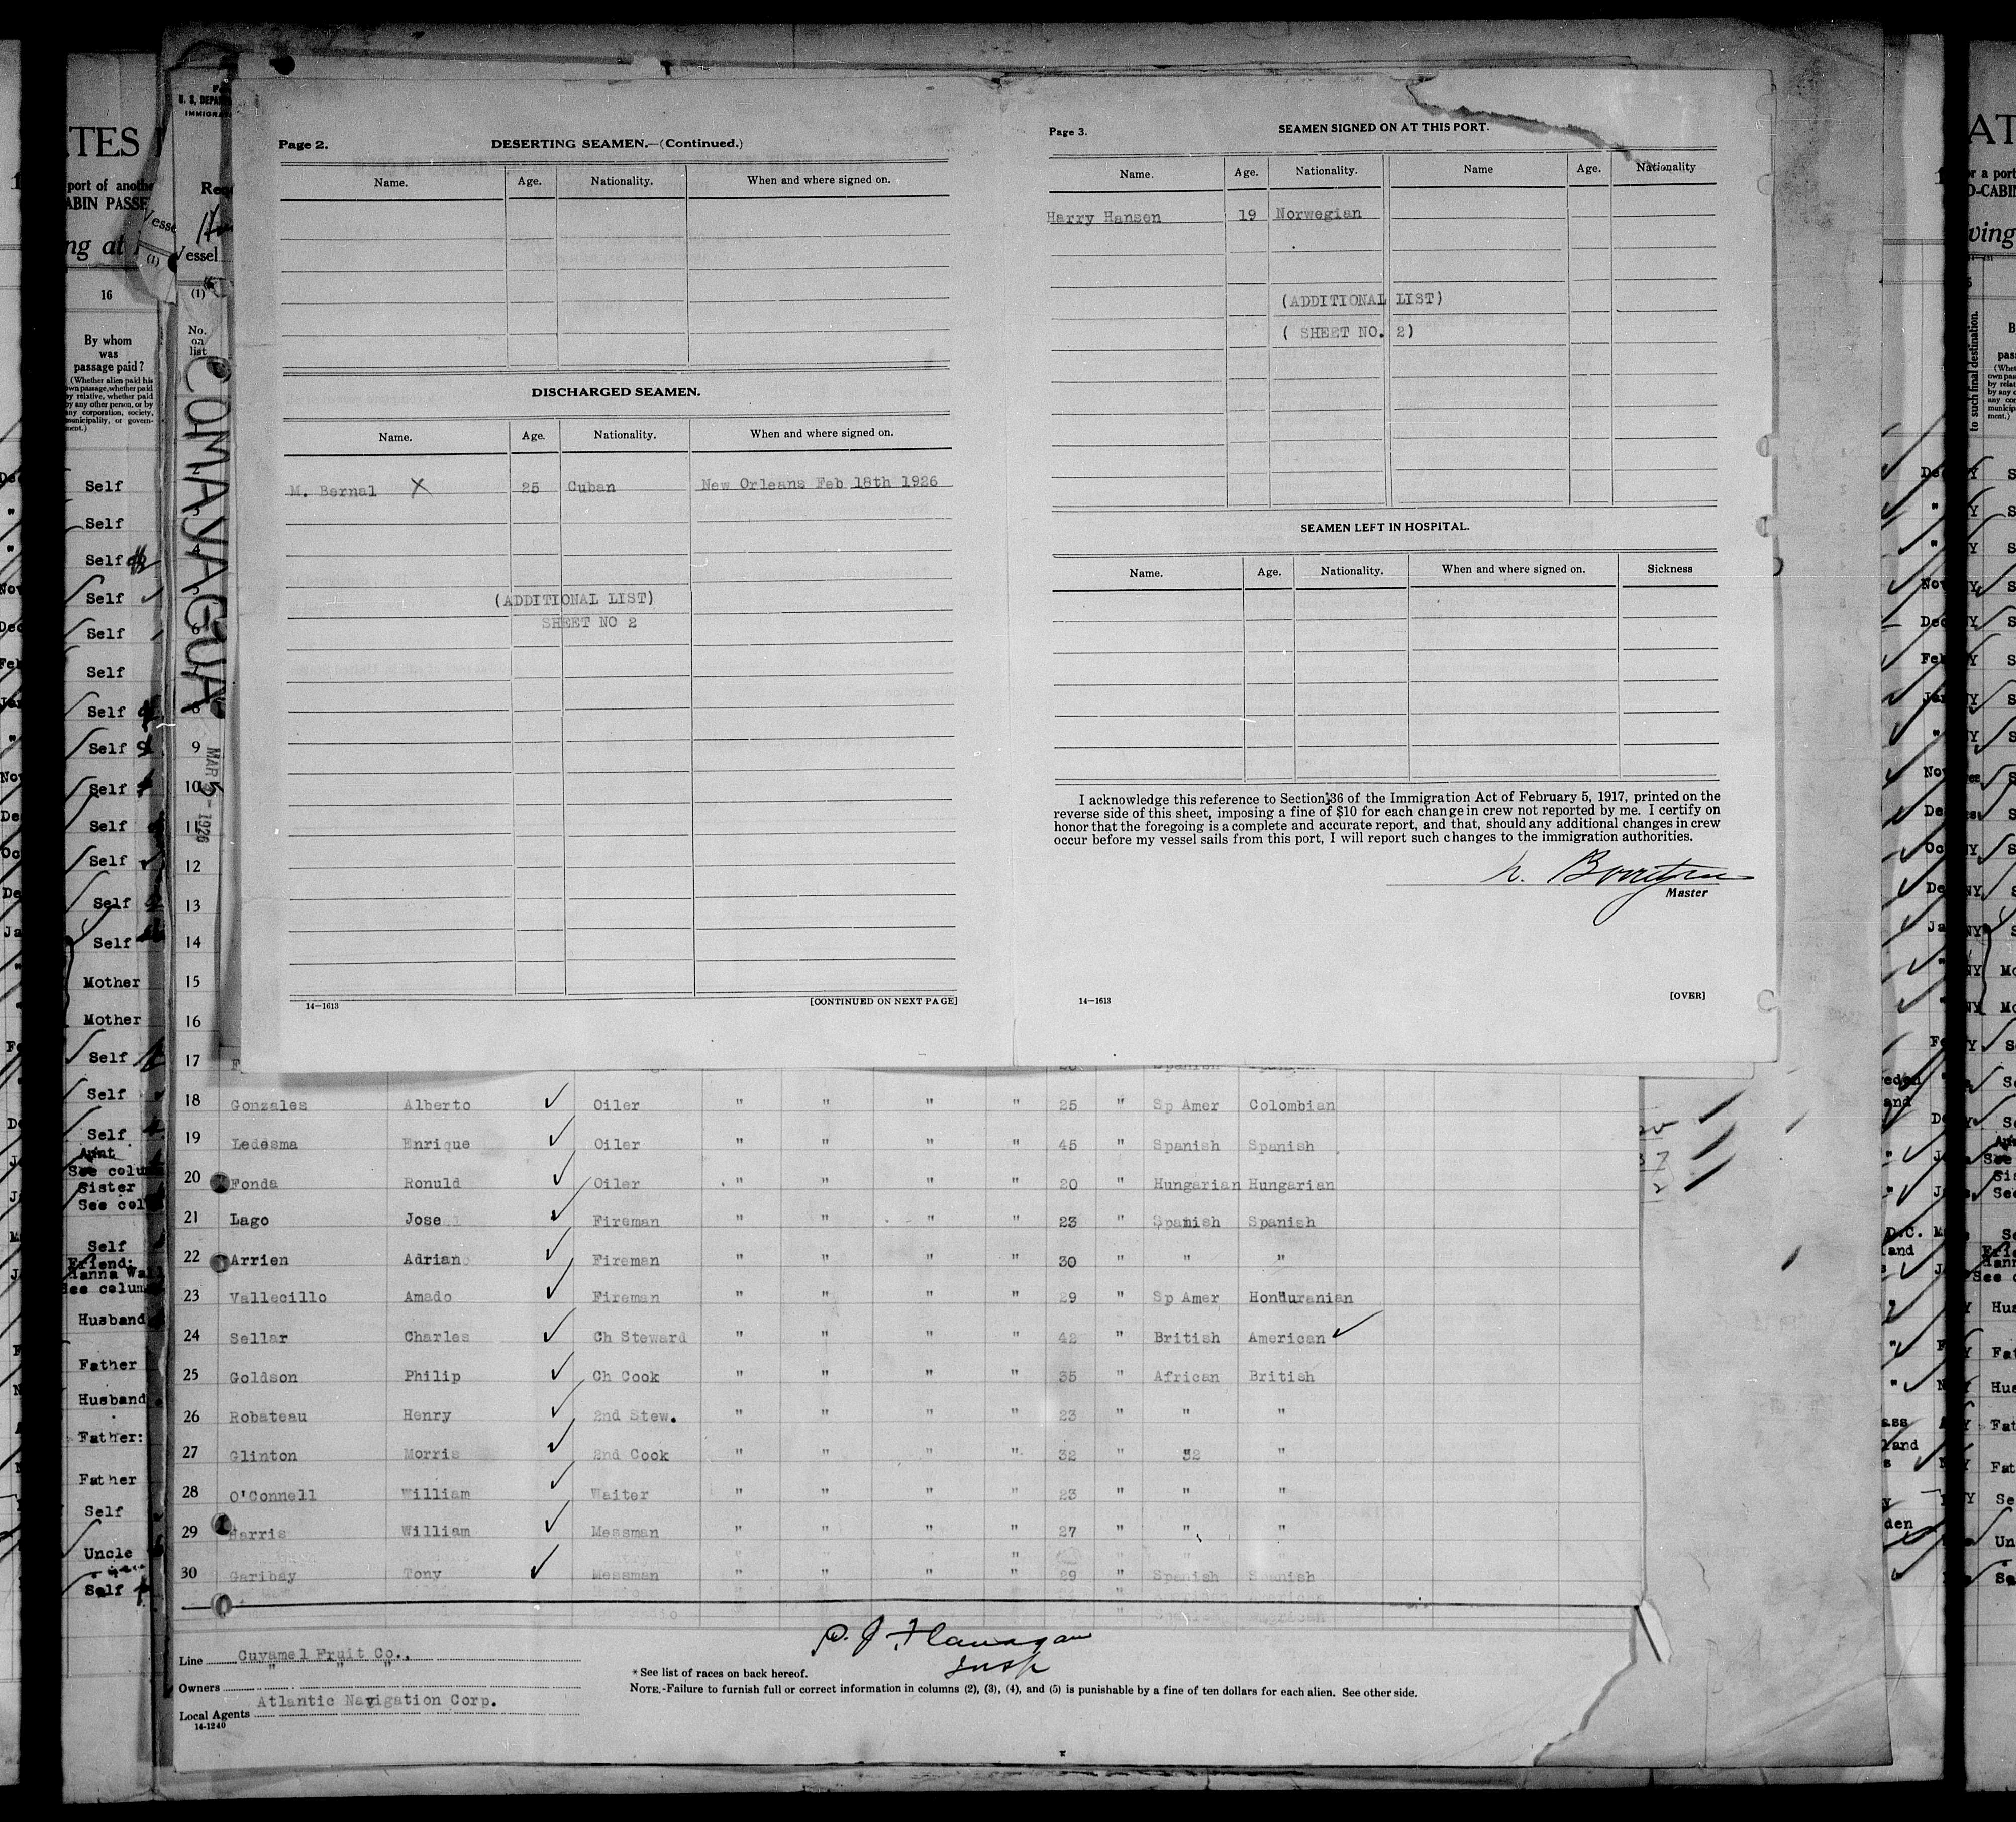 Page 2.
DESERTING SEAMEN.—(Continued.)
Name. Age. Nationality. When and where signed on.
DISCHARGED SEAMEN.
Name. Age. Nationality. When and where signed on.
M. Bernal X 25 Cuban New Orleans Feb 18th 1926
(ADDITIONAL LIST)
SHEET NO 2
14—1613 [CONTINUED ON NEXT PAGE]
Page 3.
SEAMEN SIGNED ON AT THIS PORT.
Name. Age. Nationality. Name Age. Nationality
Harry Hansen 19 Norwegian
(ADDITIONAL LIST)
( SHEET NO. 2)
SEAMEN LEFT IN HOSPITAL.
Name. Age. Nationality. When and where signed on. Sickness
I acknowledge this reference to Section 36 of the Immigration Act of February 5, 1917, printed on the
reverse side of this sheet, imposing a fine of $10 for each change in crew not reported by me. I certify on
honor that the foregoing is a complete and accurate report, and that, should any additional changes in crew
occur before my vessel sails from this port, I will report such changes to the immigration authorities.
Master
14—1613 [OVER]
U. S. DEPA
IMMIGRA
Req
Vessel
(1)
No.
on
list
COMAYAGUA
MAR 5 - 1926
2
3
4
6
7
8
9
10
11
12
13
14
15
16
17
18 Gonzales Alberto Oiler " " " " 25 " Sp Amer Colombian
19 Ledesma Enrique Oiler " " " " 45 " Spanish Spanish
20 Fonda Ronuld Oiler " " " " 20 " Hungarian Hungarian
21 Lago Jose Fireman " " " " 23 " Spanish Spanish
22 Arrien Adrian Fireman " " " " 30 " " "
23 Vallecillo Amado Fireman " " " " 29 " Sp Amer Honduranian
24 Sellar Charles Ch Steward " " " " 42 " British American
25 Goldson Philip Ch Cook " " " " 35 " African British
26 Robateau Henry 2nd Stew. " " " " 23 " " "
27 Glinton Morris 2nd Cook " " " " 32 " 32 "
28 O'Connell William Waiter " " " " 23 " " "
29 Harris William Messman " " " " 27 " " "
30 Garibay Tony Messman " " " " 29 " Spanish Spanish
Line Cuyamel Fruit Co.,
Owners " " "
Local Agents Atlantic Navigation Corp.
14-1240
*See list of races on back hereof.
NOTE.-Failure to furnish full or correct information in columns (2), (3), (4), and (5) is punishable by a fine of ten dollars for each alien. See other side.
ATES
port of anothe
ABIN PASSE
ng at
16
By whom
was
passage paid?
(Whether alien paid his
own passage, whether paid
by relative, whether paid
by any other person, or by
any corporation, society,
municipality, or govern-
ment.)
Self
Self
Self
Self
Self
Self
Self
Self
Self
Self
Self
Self
Self
Mother
Mother
Self
Self
Self
Aunt
See colum
Sister
See col
Self
Friend:
Hanna Wal
See colum
Husband
Father
Husband
Father:
Father
Self
Uncle
Self